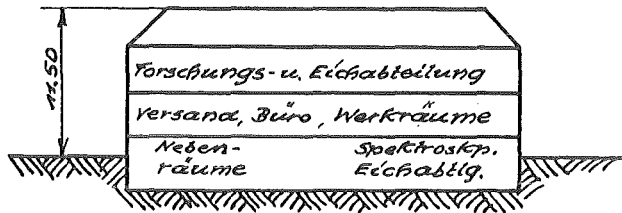 11.50
Forschungs- u. Eichabteilung
Versand, Büro, Werkräume
Neben-
räume
Spektroskp.
Eichabtlg.